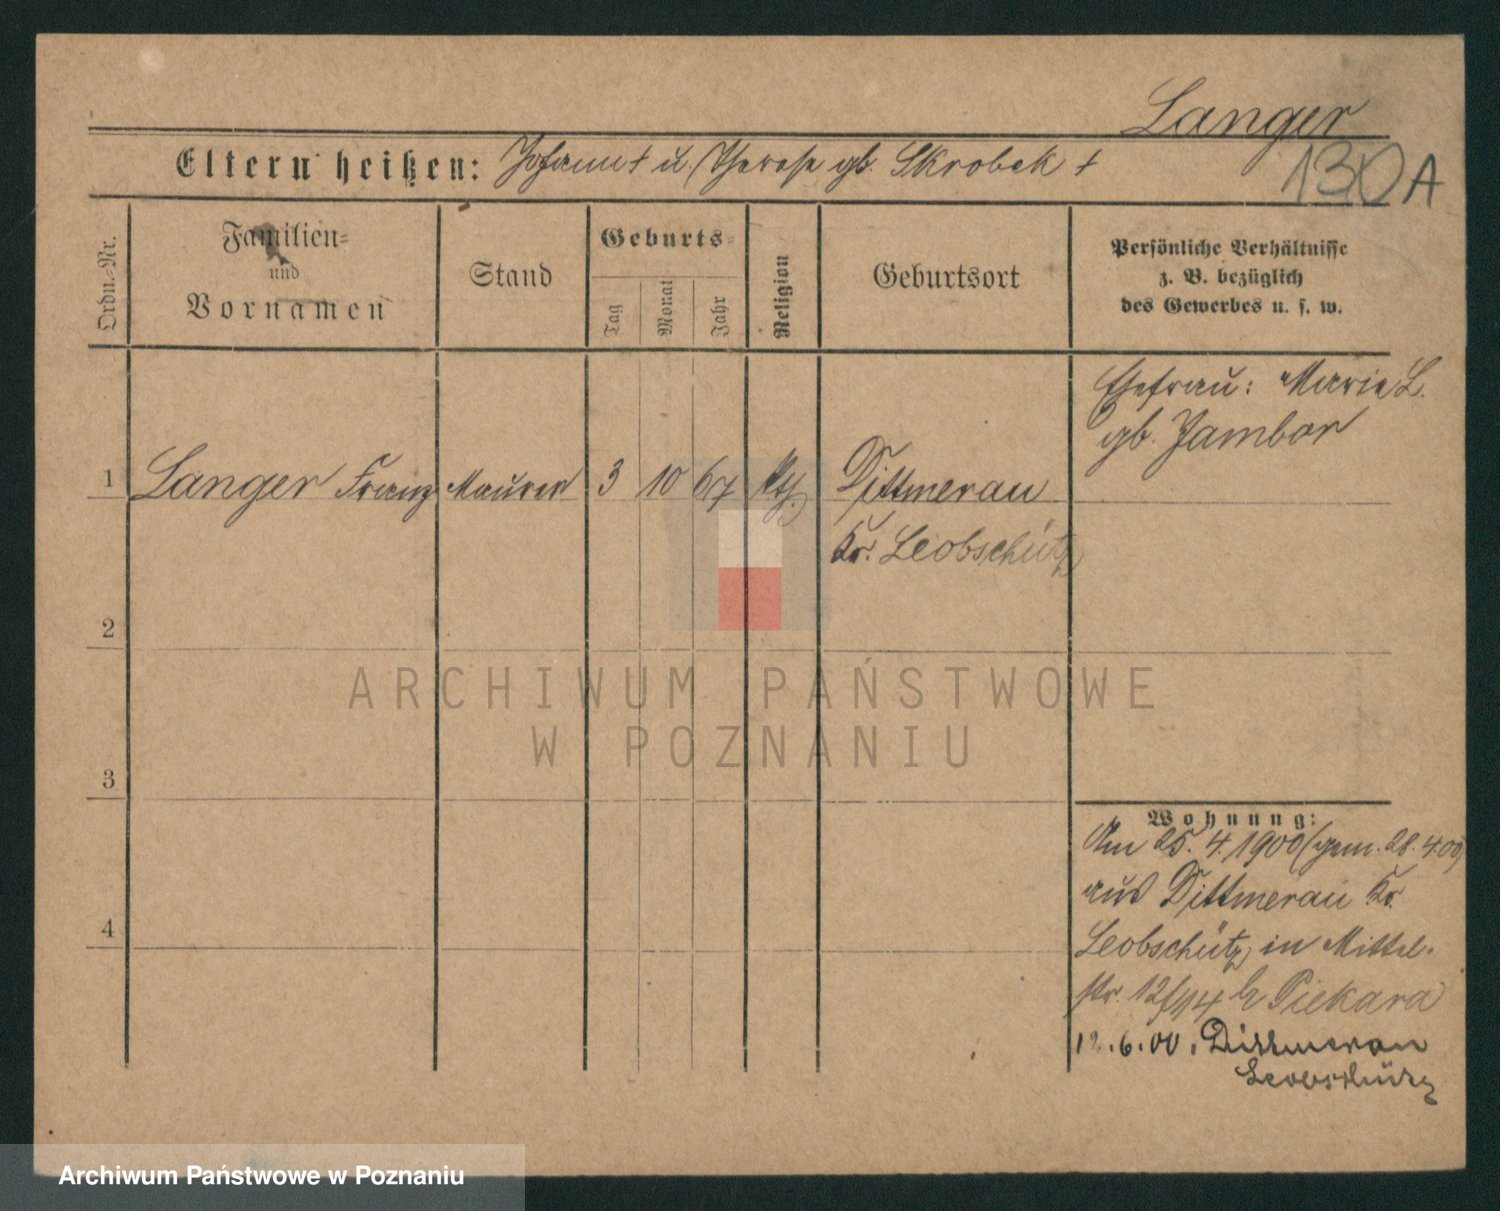 Langer
130A
Eltern heißen: Johann † u. Therese gb. Skrobek †
Ordn.-Nr.
Familien-
und
Vornamen
Stand
Geburts-
Tag
Monat
Jahr
Religion
Geburtsort
Persönliche Verhältnisse
z. B. bezüglich
des Gewerbes u. s. w.
Ehefrau: Marie L.
gb. Jambor
1 Langer Franz Maurer 3 10 67 kth. Dittmerau
Kr. Leobschütz
2
3
4
ARCHIWUM PAŃSTWOWE
W POZNANIU
Wohnung:
Am 25. 4. 1900 (gem. 28. 4. 00)
aus Dittmerau Kr.
Leobschütz in Mittel-
str. 12/14 b Piekara
12.6.00. Dittmerau
Leobschütz
Archiwum Państwowe w Poznaniu